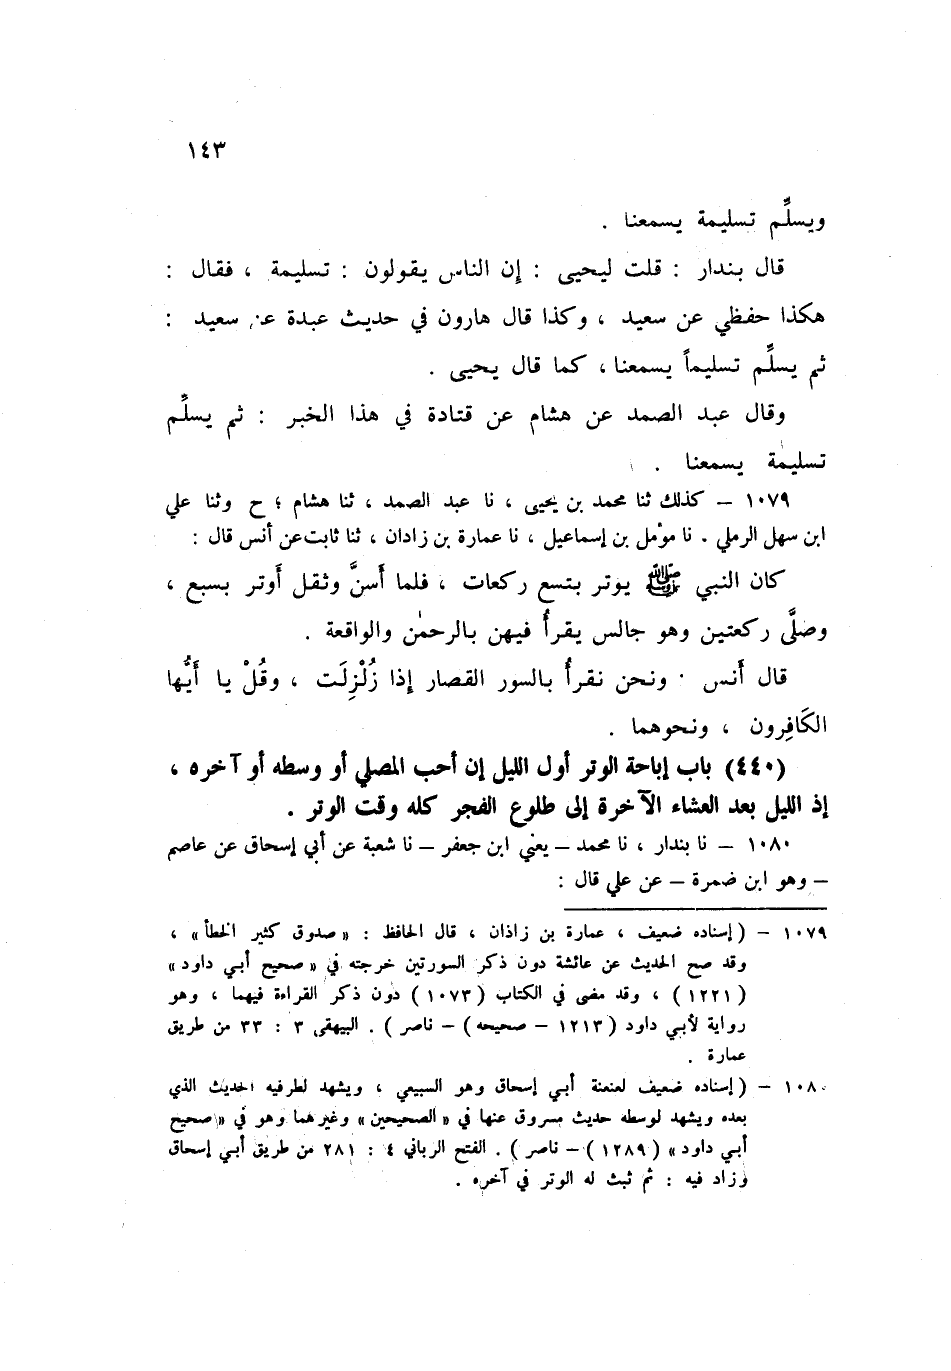 ١٤٣
ويسلِّم تسليمة يسمعنا .
قال بندار : قلت ليحيى : إن الناس يقولون : تسليمة ، فقال :
هكذا حفظي عن سعيد ، وكذا قال هارون في حديث عبدة عن سعيد :
ثم يسلِّم تسليماً يسمعنا ، كما قال يحيى .
وقال عبد الصمد عن هشام عن قتادة في هذا الخبر : ثم يسلِّم
تسليمة يسمعنا .
١٠٧٩ – كذلك ثنا محمد بن يحيى ، نا عبد الصمد ، ثنا هشام ؛ ح وثنا علي
ابن سهل الرملي . نا مؤمل بن إسماعيل ، نا عمارة بن زادان ، ثنا ثابت عن أنس قال :
كان النبي ﷺ يوتر بتسع ركعات ، فلما أَسنَّ وثقل أَوتر بسبع ،
وصلَّى ركعتين وهو جالس يقرأُ فيهن بالرحمٰن والواقعة .
قال أَنس : ونحن نقرأُ بالسور القصار إذا زُلْزِلَت ، وقُلْ يا أَيُّها
الكَافِرون ، ونحوهما .
(٤٤٠) باب إباحة الوتر أول الليل إن أحب المصلي أو وسطه أو آخره ،
إذ الليل بعد العشاء الآخرة إلى طلوع الفجر كله وقت الوتر .
١٠٨٠ – نا بندار ، نا محمد – يعني ابن جعفر – نا شعبة عن أبي إسحاق عن عاصم
– وهو ابن ضمرة – عن علي قال :
١٠٧٩ – (إسناده ضعيف ، عمارة بن زاذان ، قال الحافظ : «صدوق كثير الخطأ» ،
وقد صح الحديث عن عائشة دون ذكر السورتين خرجته في «صحيح أبي داود»
(١٢٢١) ، وقد مضى في الكتاب (١٠٧٣) دون ذكر القراءة فيهما ، وهو
رواية لأبي داود (١٢١٣ – صحيحه) – ناصر ) . البيهقي ٣ : ٣٣ من طريق
عمارة .
١٠٨٠ – (إسناده ضعيف لعنعنة أبي إسحاق وهو السبيعي ، ويشهد لطرفيه الحديث الذي
بعده ويشهد لوسطه حديث مسروق عنها في «الصحيحين» وغيرهما وهو في «صحيح
أبي داود» (١٢٨٩) – ناصر ) . الفتح الرباني ٤ : ٢٨١ من طريق أبي إسحاق
وزاد فيه : ثم ثبت له الوتر في آخره .